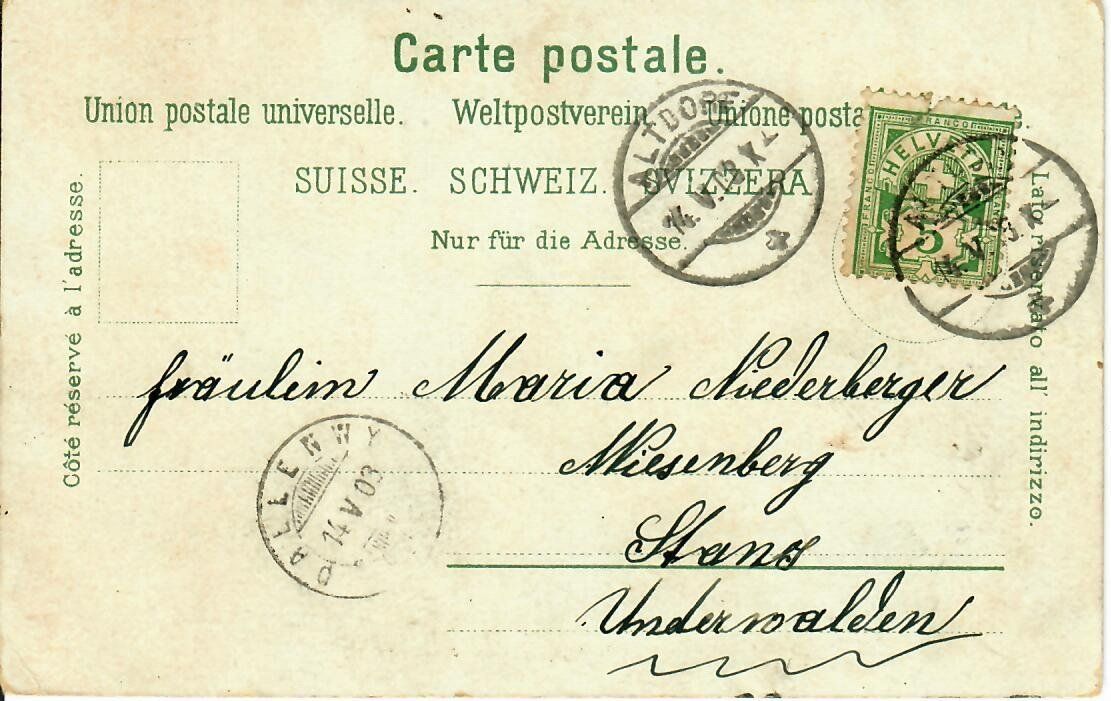 Carte postale.
Union postale universelle. Weltpostverein Unione posta
SUISSE. SCHWEIZ. SVIZZERA
Nur für die Adresse.
Côté réservé à l'adresse.
Lato riservato all' indirizzo.
ALTDORF
14.V.03.X
FRANCO
HELVETIA
FRANCO
5
14.V.03.X
fräulein Maria Niederberger
Wiesenberg
Stans
Underwalden
DALLENWY
14 V 03